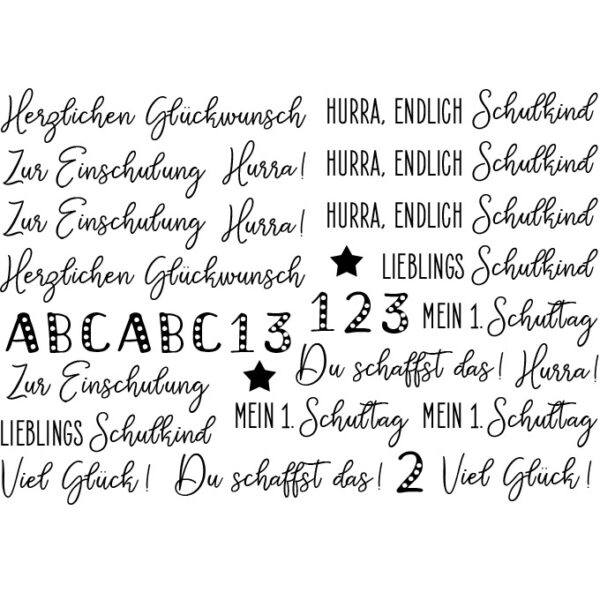 Herzlichen Glückwunsch HURRA, ENDLICH Schulkind
Zur Einschulung Hurra! HURRA, ENDLICH Schulkind
Zur Einschulung Hurra! HURRA, ENDLICH Schulkind
Herzlichen Glückwunsch LIEBLINGS Schulkind
ABCABC13 123 MEIN 1. Schultag
Zur Einschulung Du schaffst das! Hurra!
LIEBLINGS Schulkind MEIN 1. Schultag MEIN 1. Schultag
Viel Glück! Du schaffst das! 2 Viel Glück!